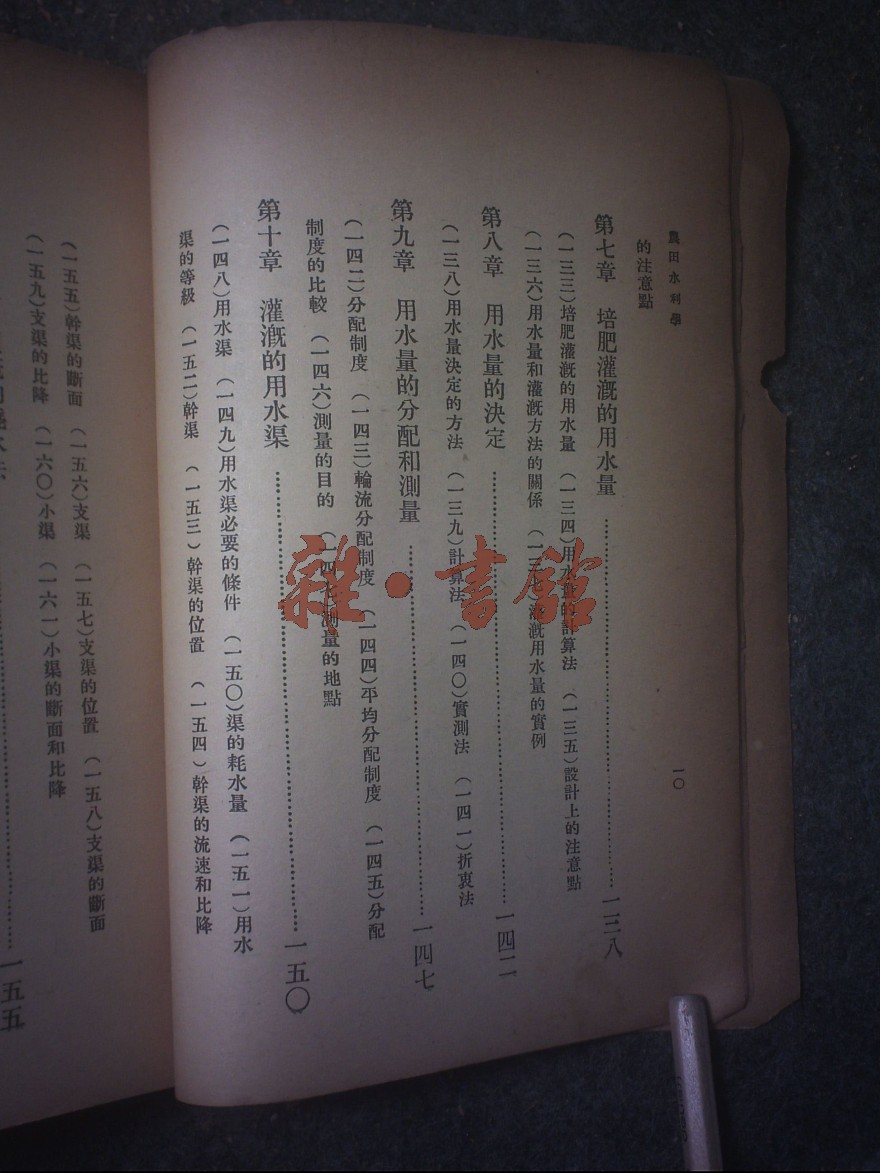 農田水利學
一〇
的注意點
第七章 培肥灌漑的用水量……一三八
(一三三)培肥灌漑的用水量 (一三四)用水量的計算法 (一三五)設計上的注意點
(一三六)用水量和灌漑方法的關係 (一三七)灌漑用水量的實例
第八章 用水量的決定……一四二
(一三八)用水量決定的方法 (一三九)計算法 (一四〇)實測法 (一四一)折衷法
第九章 用水量的分配和測量……一四七
(一四二)分配制度 (一四三)輪流分配制度 (一四四)平均分配制度 (一四五)分配
制度的比較 (一四六)測量的目的 (一四七)測量的地點
第十章 灌漑的用水渠……一五〇
(一四八)用水渠 (一四九)用水渠必要的條件 (一五〇)渠的耗水量 (一五一)用水
渠的等級 (一五二)幹渠 (一五三)幹渠的位置 (一五四)幹渠的流速和比降
(一五五)幹渠的斷面 (一五六)支渠 (一五七)支渠的位置 (一五八)支渠的斷面
(一五九)支渠的比降 (一六〇)小渠 (一六一)小渠的斷面和比降
一五五
雜·書館